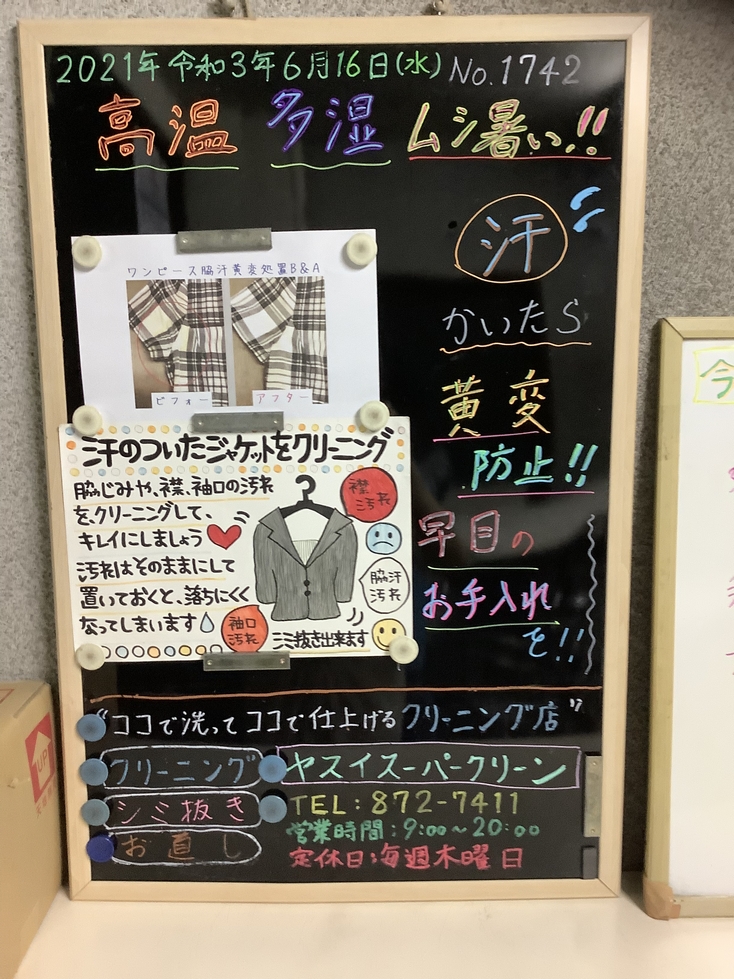 2021年 令和3年6月16日(水) No.1742
高温 多湿 ムシ暑い!!
汗
かいたら
黄変
防止!!
早目の
お手入れ
を!!
ワンピース脇汗黄変処置B&A
ビフォー アフター
汗のついたジャケットをクリーニング
脇じみや、襟、袖口の汚れ
を、クリーニングして、
キレイにしましょう
汚れはそのままにして
置いておくと、落ちにくく
なってしまいます
襟汚れ
脇汗汚れ
袖口汚れ
シミ抜き出来ます
"ココで洗ってココで仕上げるクリーニング店"
クリーニング
シミ抜き
お直し
ヤスイスーパークリーン
TEL:872-7411
営業時間:9:00~20:00
定休日:毎週木曜日
今
UP